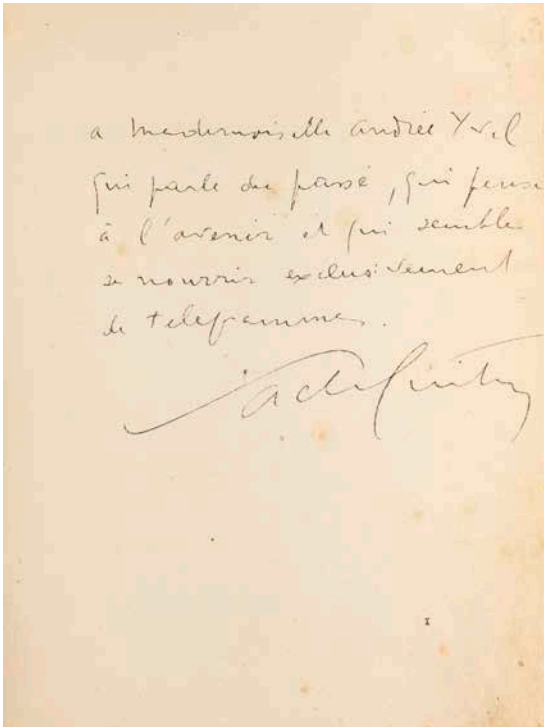 a Mademoiselle Andrée Yvel
qui parle du passé, qui pense
à l'avenir et qui semble
se nourrir exclusivement
de telegrammes.
Sacha Guitry
I